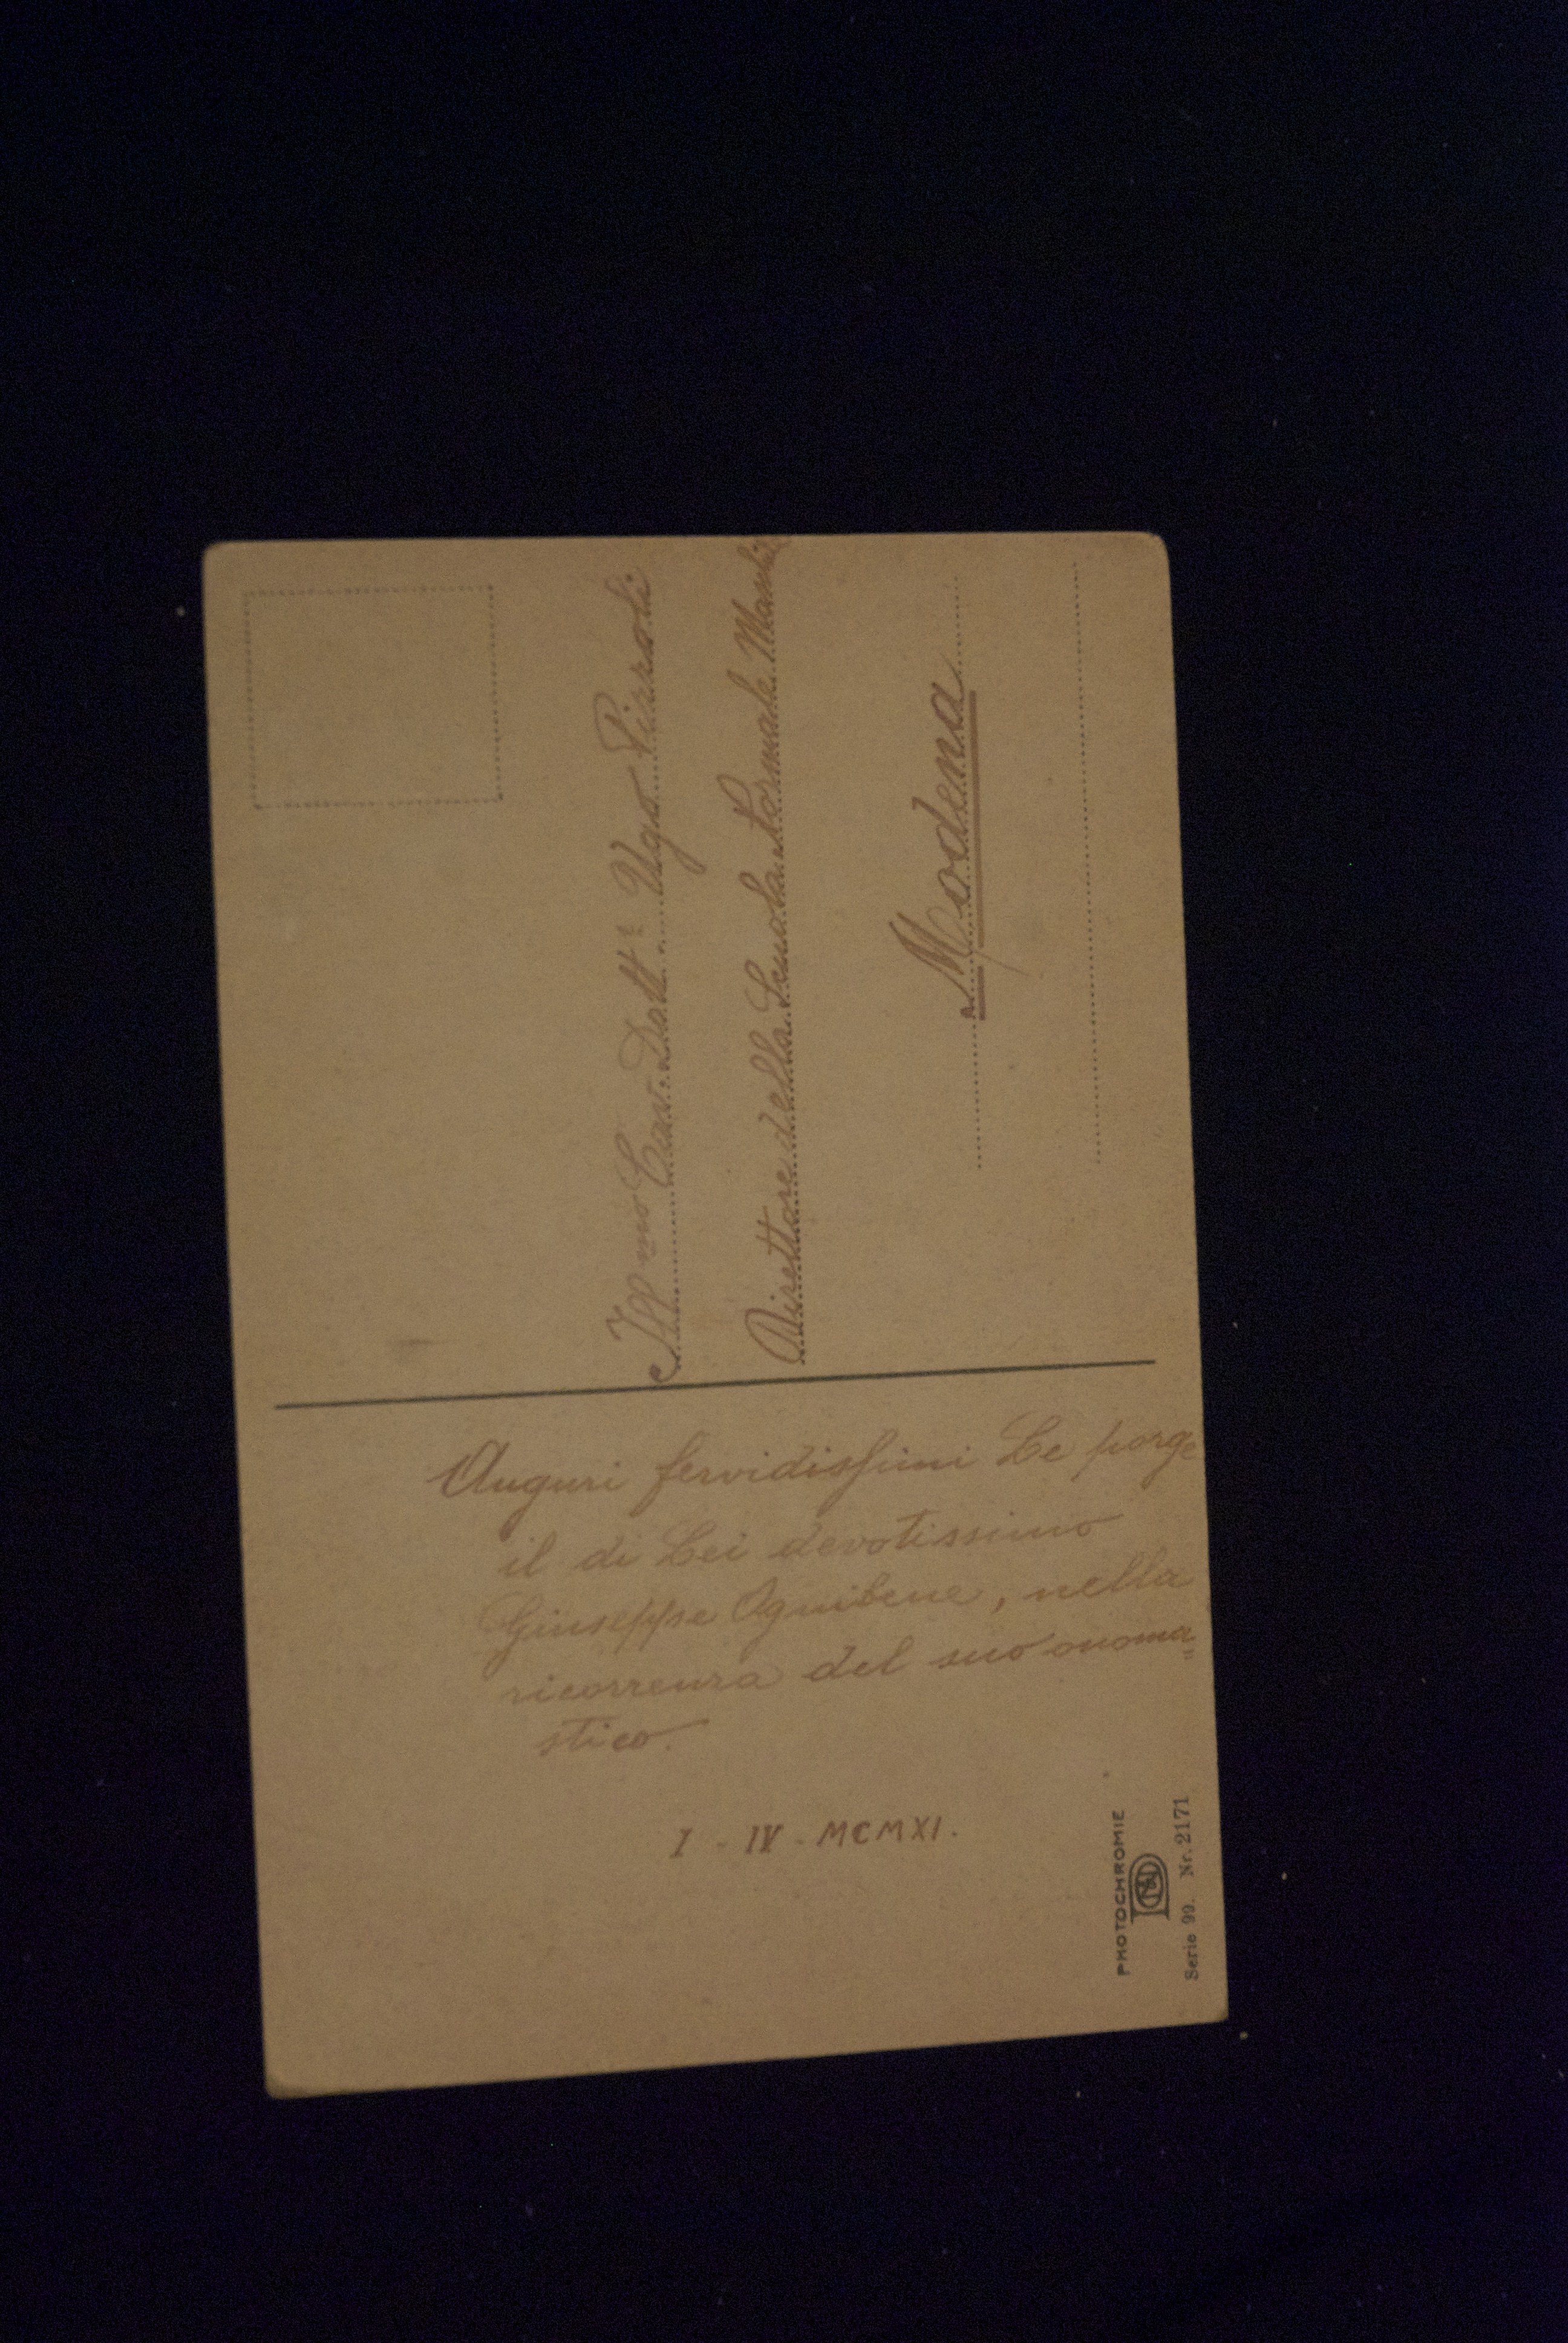 Ill mo Cav. Dott. r Ugo Pizzoli
Direttore della Scuola Normale Maschile
Modena
Auguri fervidissimi Le porge
il di Lei devotissimo
Giuseppe Ognibene, nella
ricorrenza del suo onoma=
stico.
I - IV - MCMXI.
PHOTOCHROMIE
Serie 99. Nr. 2171